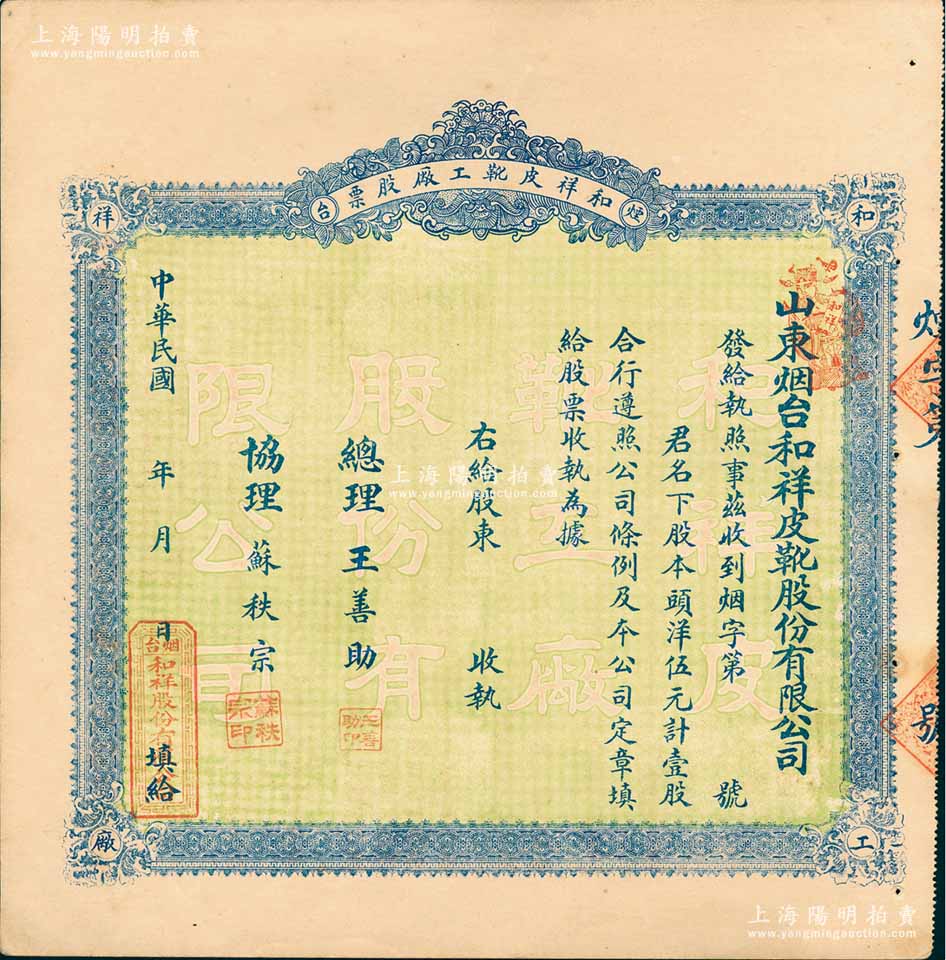 上海陽明拍賣
www.yangmingauction.com
煙台和祥皮靴工廠股票
和祥工廠
山東烟台和祥皮靴股份有限公司
發給執照事茲收到烟字第 號
君名下股本頭洋伍元計壹股
合行遵照公司條例及本公司定章填
給股票收執為據
右給股東 收執
總理 王善助
王善助印
協理 蘇秩宗
蘇秩宗印
中華民國 年 月 日填給
烟台和祥股份有
和祥皮靴工廠股份有限公司
煙字第 號
上海陽明拍賣
www.yangmingauction.com
上海陽明拍賣
www.yangmingauction.com